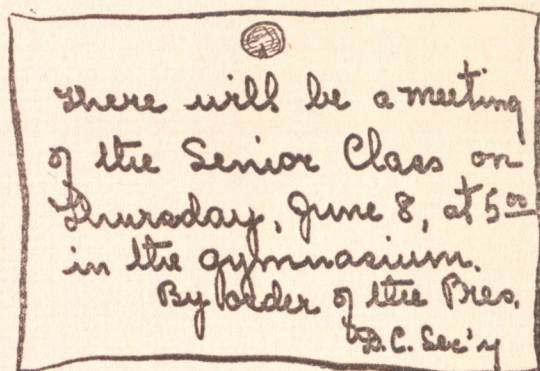 There will be a meeting
of the Senior Class on
Thursday, June 8, at 5⁰⁰
in the gymnasium.
By order of the Pres.
D.C. Sec'y